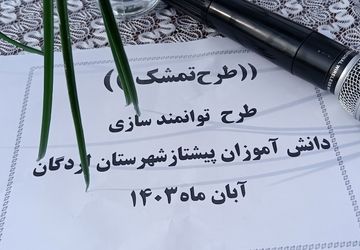 ((طرح تمشک))
طرح توانمند سازی
دانش آموزان پیشتاز شهرستان لردگان
آبان ماه ۱۴۰۳